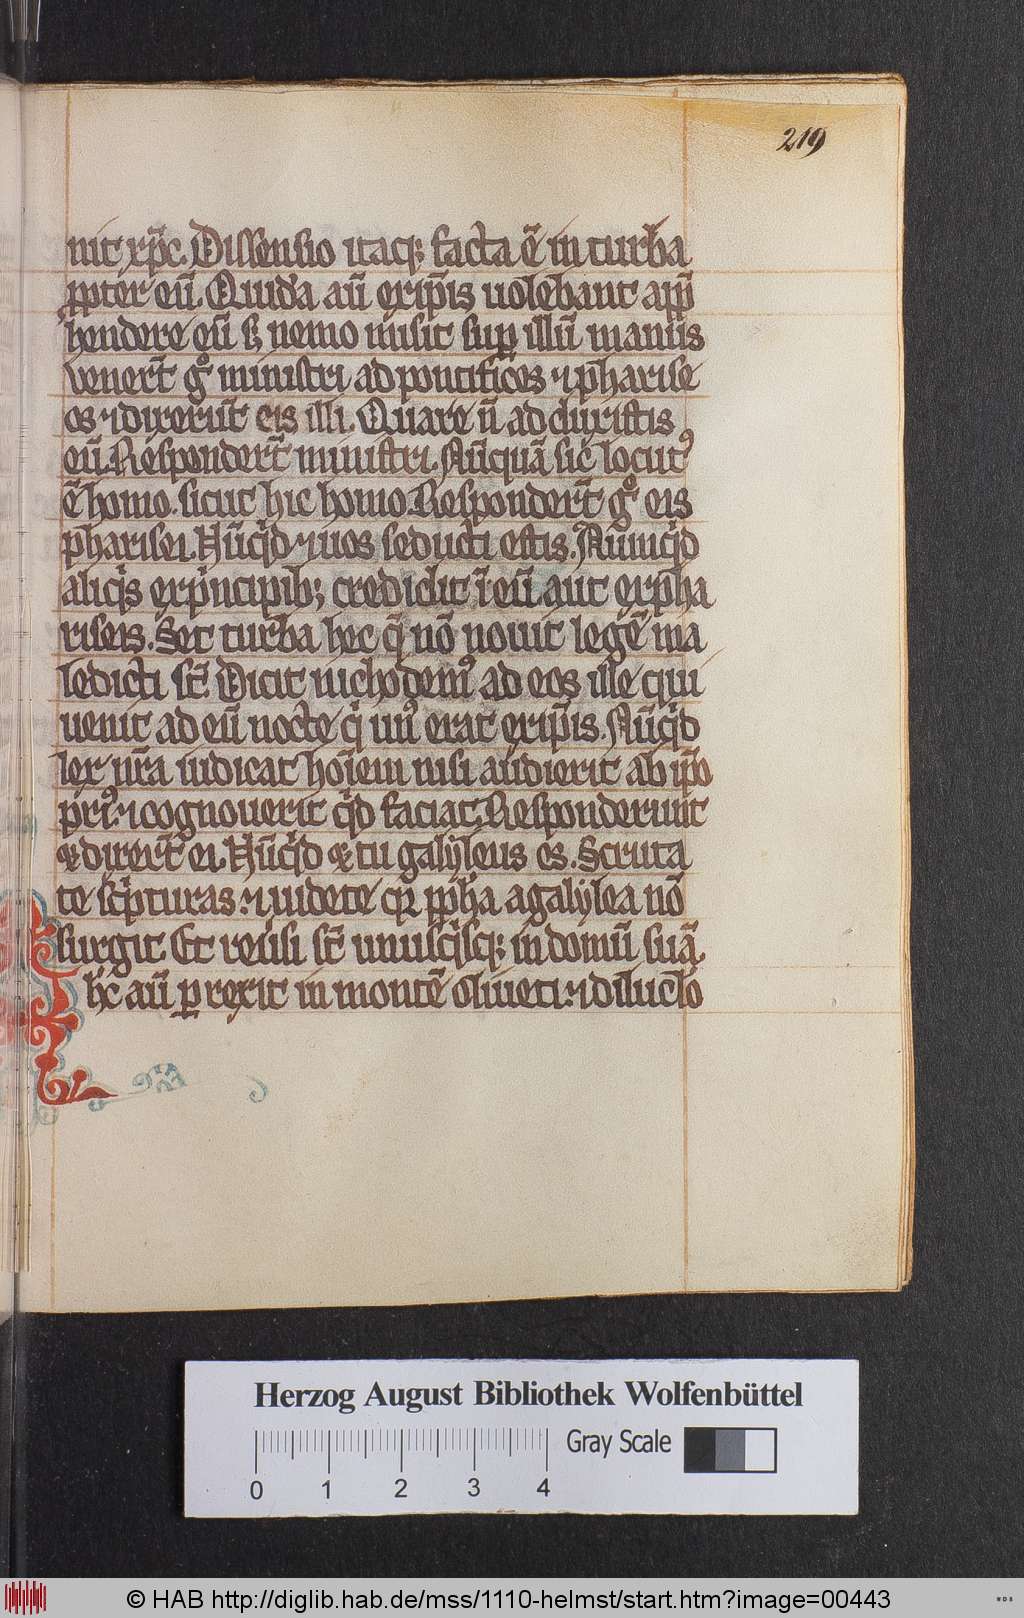 219
nit xp̄c. Dissensio itaq; facta ē in turba
ppter eū. Quida aū ex ip̄is uolebant app
hendere eū s; nemo misit sup illū manus
venert̄ gͦ ministri ad pontifices ⁊ pharise
os ⁊ dixerūt eis illi. Quare n̄ adduxistis
eū. Respondert̄ ministri. Nūquā sic locutꝰ
ē homo. sicut hic homo. Respondert̄ gͦ eis
pharisei. Nūqͥd ⁊ uos seducti estis. Nūmqͥd
aliqͥs ex pͥncipib; credidit ī eū aut ex pha
riseis. Set turba hec q̄ nō nouit legē ma
ledicti st̄. Dicit nichodemꝰ ad eos ille qui
uenit ad eū nocte qͥ unꝰ erat ex ip̄is. Nūqͥd
lex nr̄a iudicat hoīem nisi audierit ab ip̄o
priꝰ ⁊ cognouerit qͥd faciat. Responderunt
& dixert̄ ei. Nūqͥd & tu galyleus es. Scruta
te scͥpturas. ⁊ uidete qꝛ pp̄ha a galylea nō
surgit. Et reūsi st̄ unusqͥsq; in domū suā.
Ih̄c aū p̱rexit in montē oliueti. ⁊ diluc̄lo
Herzog August Bibliothek Wolfenbüttel
Gray Scale
0 1 2 3 4
© HAB http://diglib.hab.de/mss/1110-helmst/start.htm?image=00443